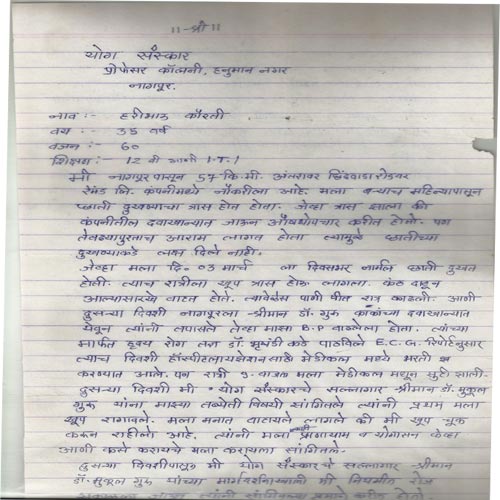 ॥ श्री ॥
योग संस्कार
प्रोफेसर कॉलनी, हनुमान नगर
नागपूर.
नाव :- हरीभाऊ कौरती
वय :- 35 वर्ष
वजन :- 60
शिक्षण :- 12 वी आणी I.T.I
मी नागपूरपासून 57 कि.मी. अंतरावर छिंदवाडा रोडवर
रेमंड लि. कंपनीमध्ये नौकरीला आहे. मला बऱ्याच महिन्यापासून
छाती दुखण्याचा त्रास होत होता. जेव्हा त्रास झाला की
कंपनीतील दवाखान्यात जाऊन औषधोपचार करीत होतो. पण
तेवढ्यापुरताच आराम लागत होता त्यामुळे छातीच्या
दुखण्याकडे लक्ष दिले नाही.
जेव्हा मला दि. 03 मार्च ला दिवसभर नार्मल छाती दुखत
होती. त्याच रात्रीला खूप त्रास होऊ लागला. कंठ दाबून
आल्यासारखे वाटत होते. त्यावेळेस पाणी पीत रात्र काढली. आणी
दुसऱ्या दिवशी नागपूरला श्रीमान डॉ. गुरु काकांच्या दवाखान्यात
येवून त्यांनी तपासले तेव्हा माझा B.P वाढलेला होता. त्यांच्या
मार्फत हृदय रोग तज्ञ डॉ. भुषंडी कडे पाठविले E.C.G. रिपोर्टनुसार
त्याच दिवशी हॉस्पीटलायझेशनसाठी मेडीकल मध्ये भरती
करण्यात आले. पण रात्री 9 वाजता मला मेडीकल मधून सुटी झाली.
दुसऱ्या दिवशी मी योग संस्कारचे सल्लागार श्रीमान डॉ. मुकूल
गुरु यांना माझ्या तब्येती विषयी सांगितले त्यांनी प्रथम मला
खूप रागावले. मला मनात वाटायले लागले की मी खूप चूक
करून राहीलो आहे. त्यांनी मला प्राणायाम व योगासन केव्हा
आणी कसे करायचे मला करायला सांगितले.
दुसऱ्या दिवशीपासून मी योग संस्कारचे सल्लागार श्रीमान
डॉ. मुकूल गुरु यांच्या मार्गदर्शनाखाली मी नियमीत रोज